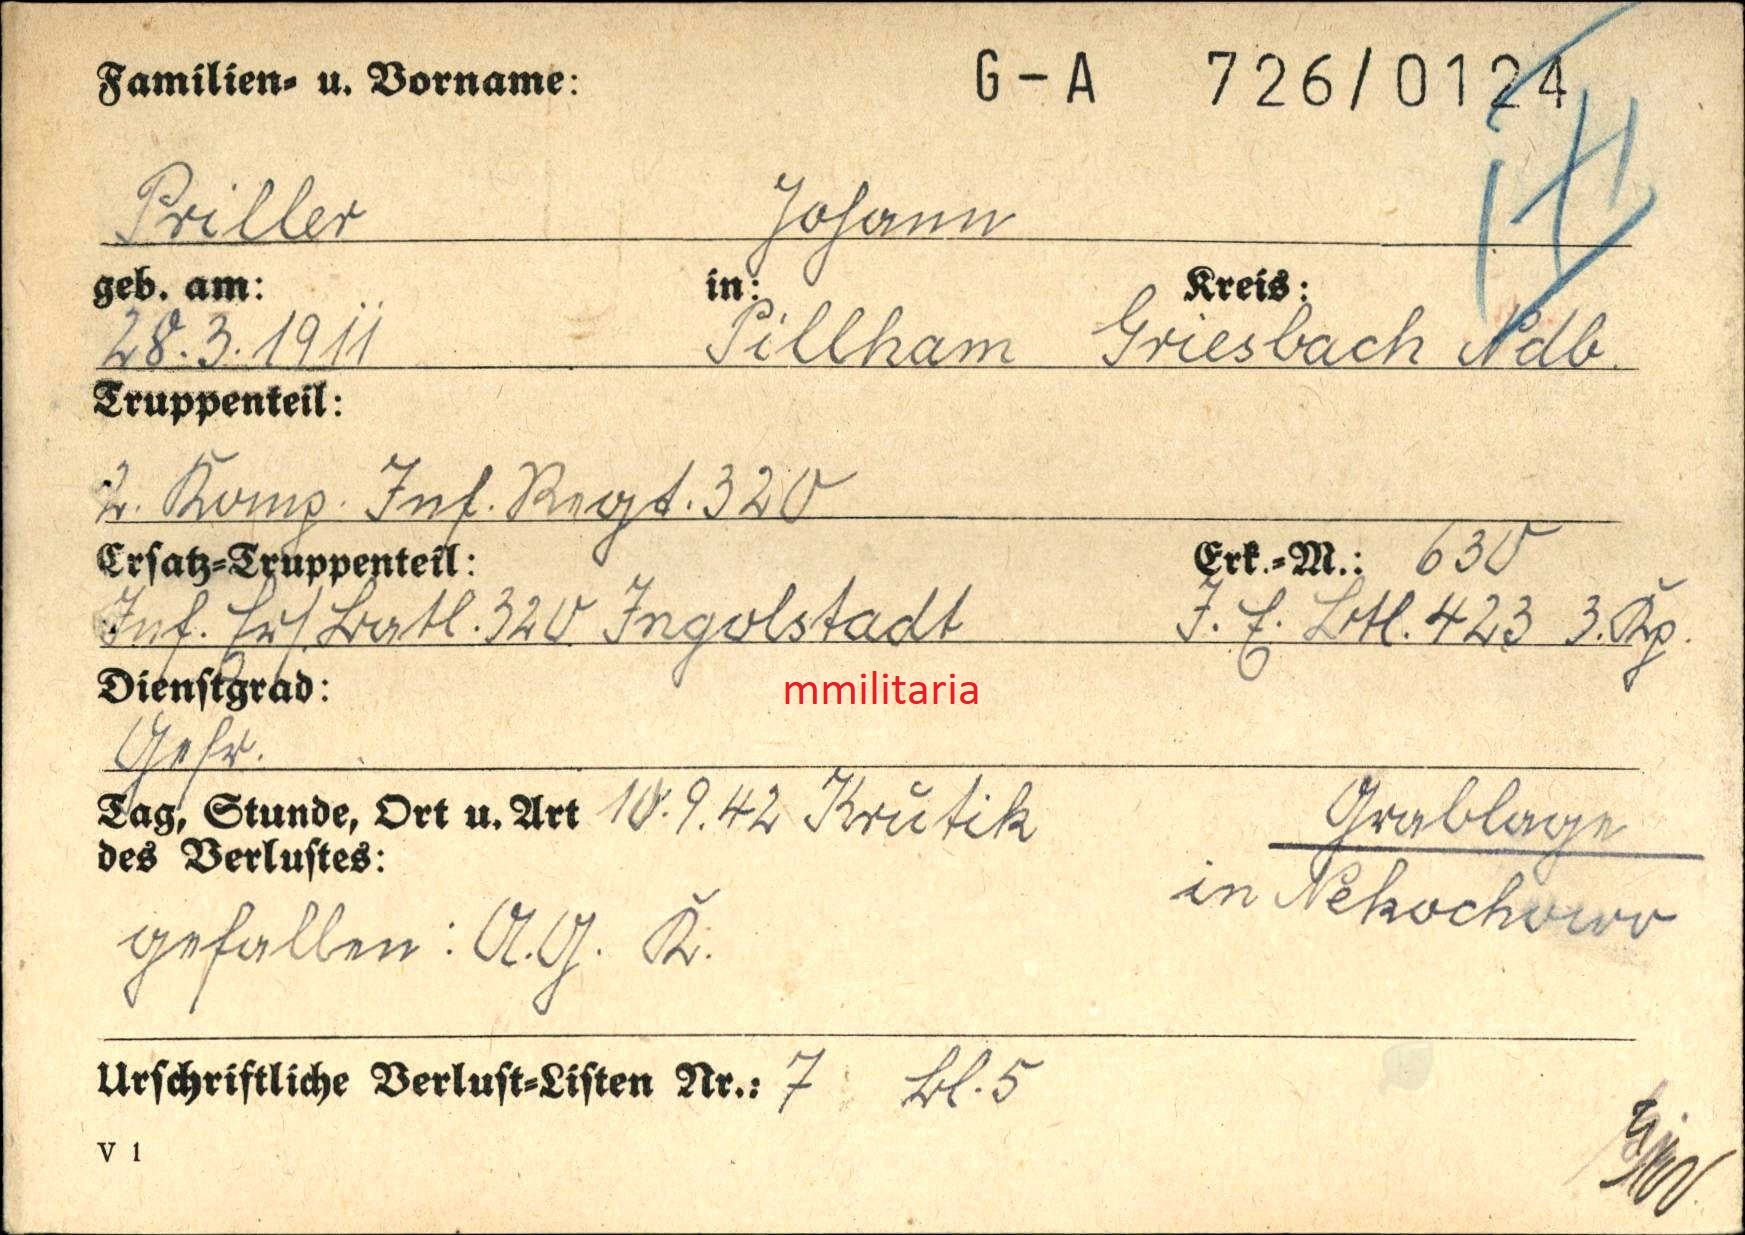 Familien- u. Vorname: G-A 726/0124
Priller Johann
geb. am: in: Kreis:
28.3.1911 Pillham Griesbach Ndb.
Truppenteil:
2. Komp. Inf. Regt. 320
Ersatz-Truppenteil: Erk.-M.: 630
Inf. Ers. Batl. 320 Ingolstadt J. E. Btl. 423 3. Kp.
Dienstgrad:
mmilitaria
Gefr.
Tag, Stunde, Ort u. Art 10.9.42 Krutik Grablage
des Verlustes: in
gefallen: A.G. K.
Urschriftliche Verlust-Listen Nr.: 7 Bl. 5
V 1